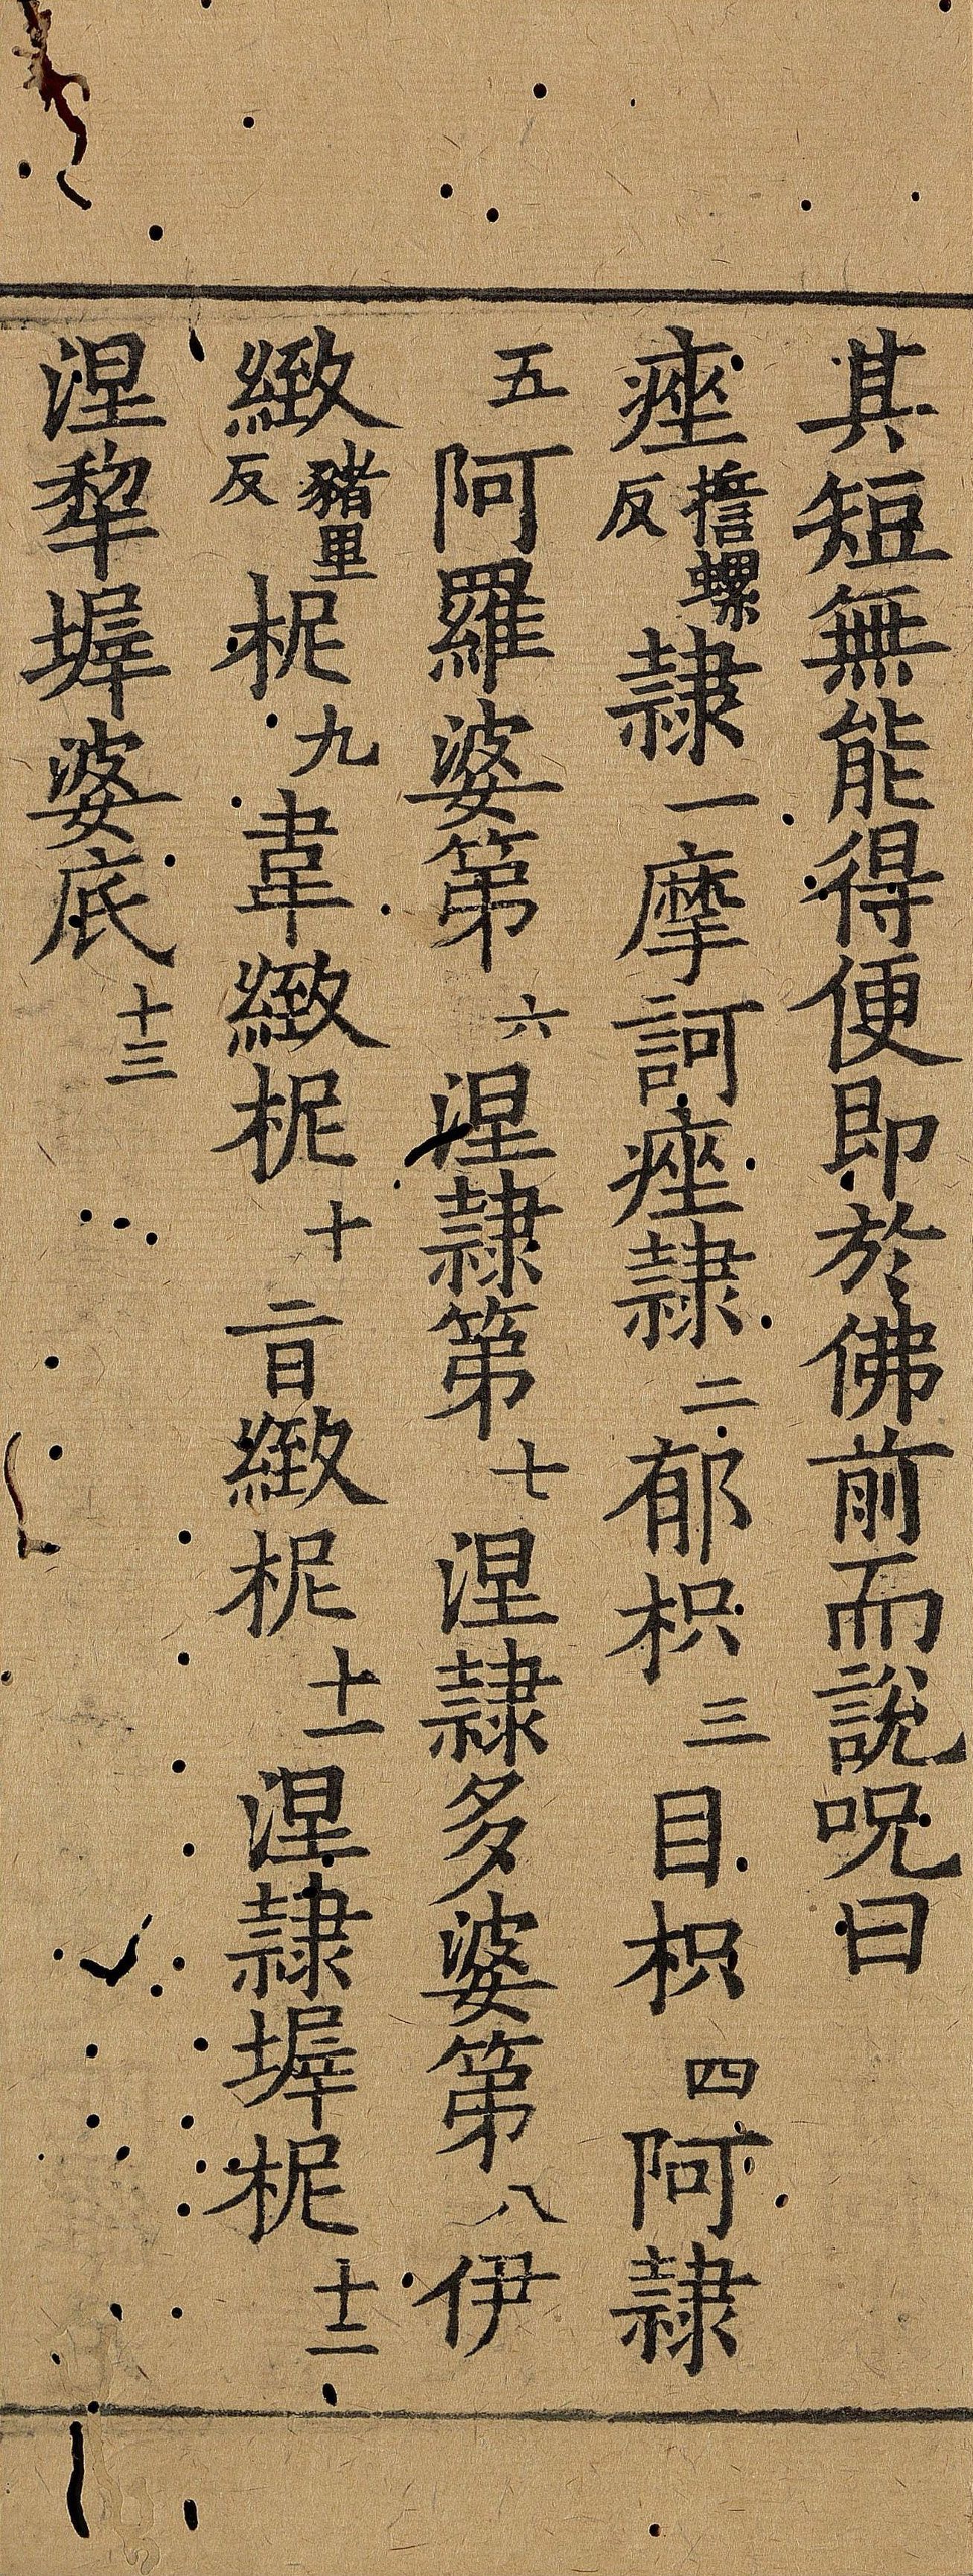 其短無能得便即於佛前而說呪曰
痤誓螺反隸一摩訶痤隸二郁枳三目枳四阿隸
五阿羅婆第六涅隸第七涅隸多婆第八伊
緻豬里反柅九韋緻柅十旨緻柅十一涅隸墀柅十二
涅犂墀婆底十三